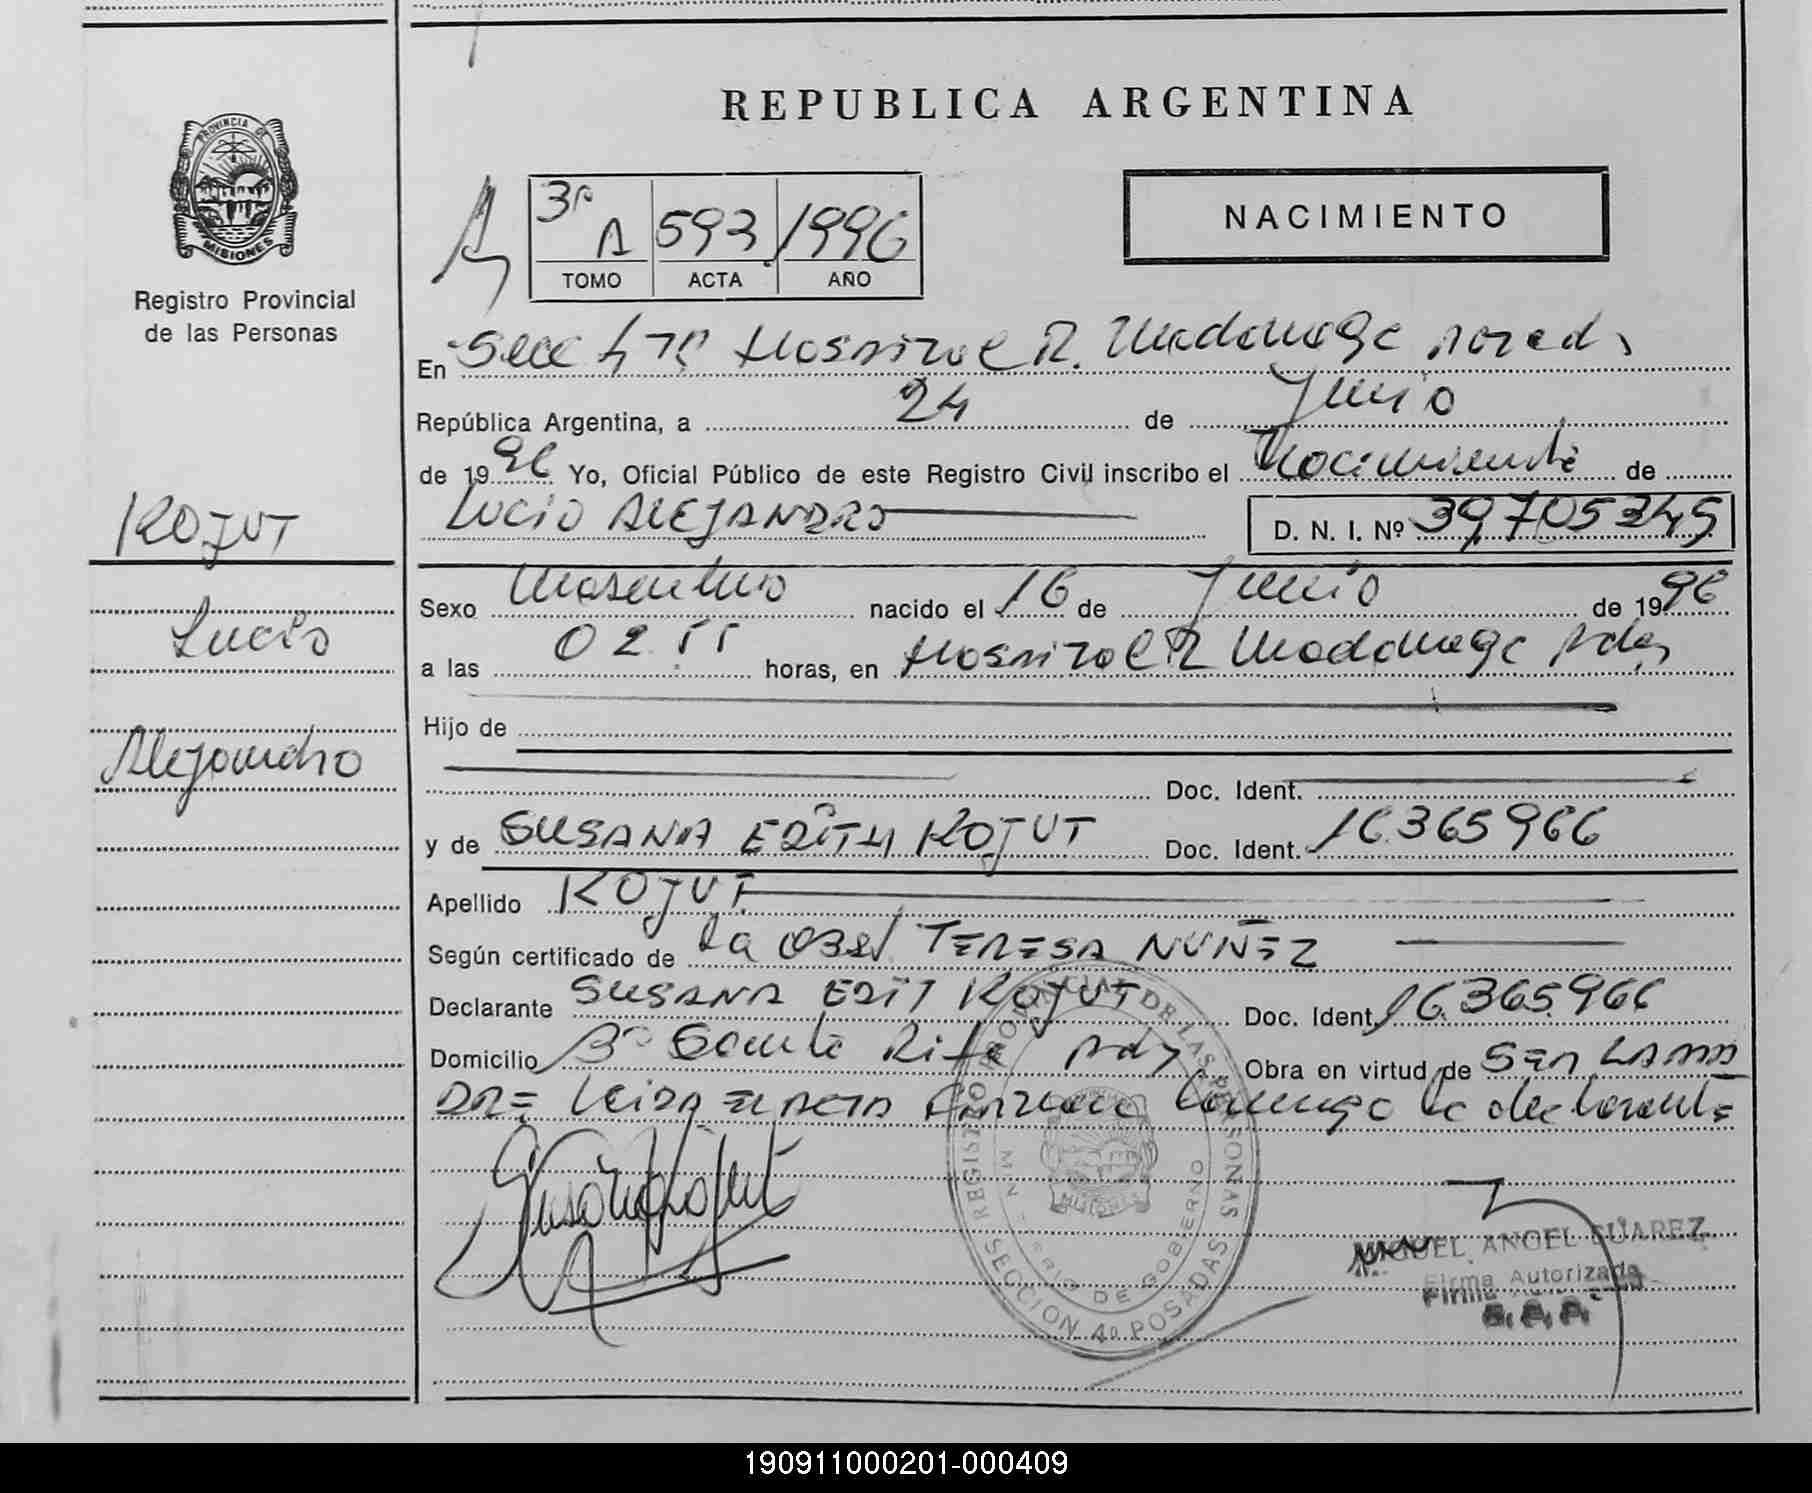 REPUBLICA ARGENTINA
PROVINCIA DE
MISIONES
Registro Provincial
de las Personas
3º A 593 1996
TOMO ACTA AÑO
NACIMIENTO
En Secc 4ª Hospital R. Madariaga Posadas
República Argentina, a 24 de Junio
de 1996 Yo, Oficial Público de este Registro Civil inscribo el Nacimiento de
LUCIO ALEJANDRO D. N. I. Nº 39.705345
KOJUT
Lucio
Alejandro
Sexo Masculino nacido el 16 de Junio de 1996
a las 02 55 horas, en Hospital R Madariaga Pdas
Hijo de
Doc. Ident.
y de SUSANA EDITH KOJUT Doc. Ident. 16.365966
Apellido KOJUT
Según certificado de la Obst TERESA NUÑEZ
Declarante SUSANA EDIT KOJUT Doc. Ident. 16.365.966
Domicilio Bº Santa Rita Pdas Obra en virtud de SER LA MA
DRE Leida el acta firma conmigo la declarante
REGISTRO PROVINCIAL DE LAS PERSONAS
MINISTERIO DE GOBIERNO
MISIONES
SECCION 4º POSADAS
MIGUEL ANGEL SUAREZ
Firma Autorizada
190911000201-000409